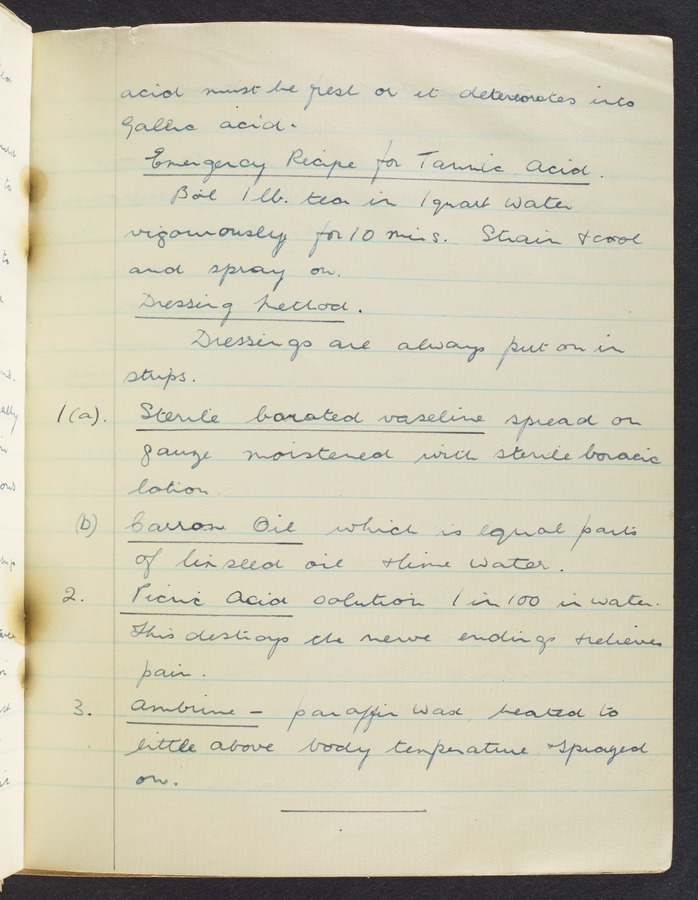 acid must be fresh or it detereorates into
Gallic acid.
Emergency Recipe for Tannic Acid.
Boil 1 lb. tea in 1 quart water
vigourously for 10 mins. Strain & cool
and spray on.
Dressing Method.
Dressings are always put on in
strips.
1(a). Sterile borated vaseline spread on
gauze moistened with sterile boracic
lotion
(b) Carron Oil which is equal parts
of linseed oil & lime water.
2. Picric Acid solution 1 in 100 in water.
This destroys the nerve endings & relieves
pain.
3. Ambrine - paraffin wax heated to
little above body temperature & sprayed
on.